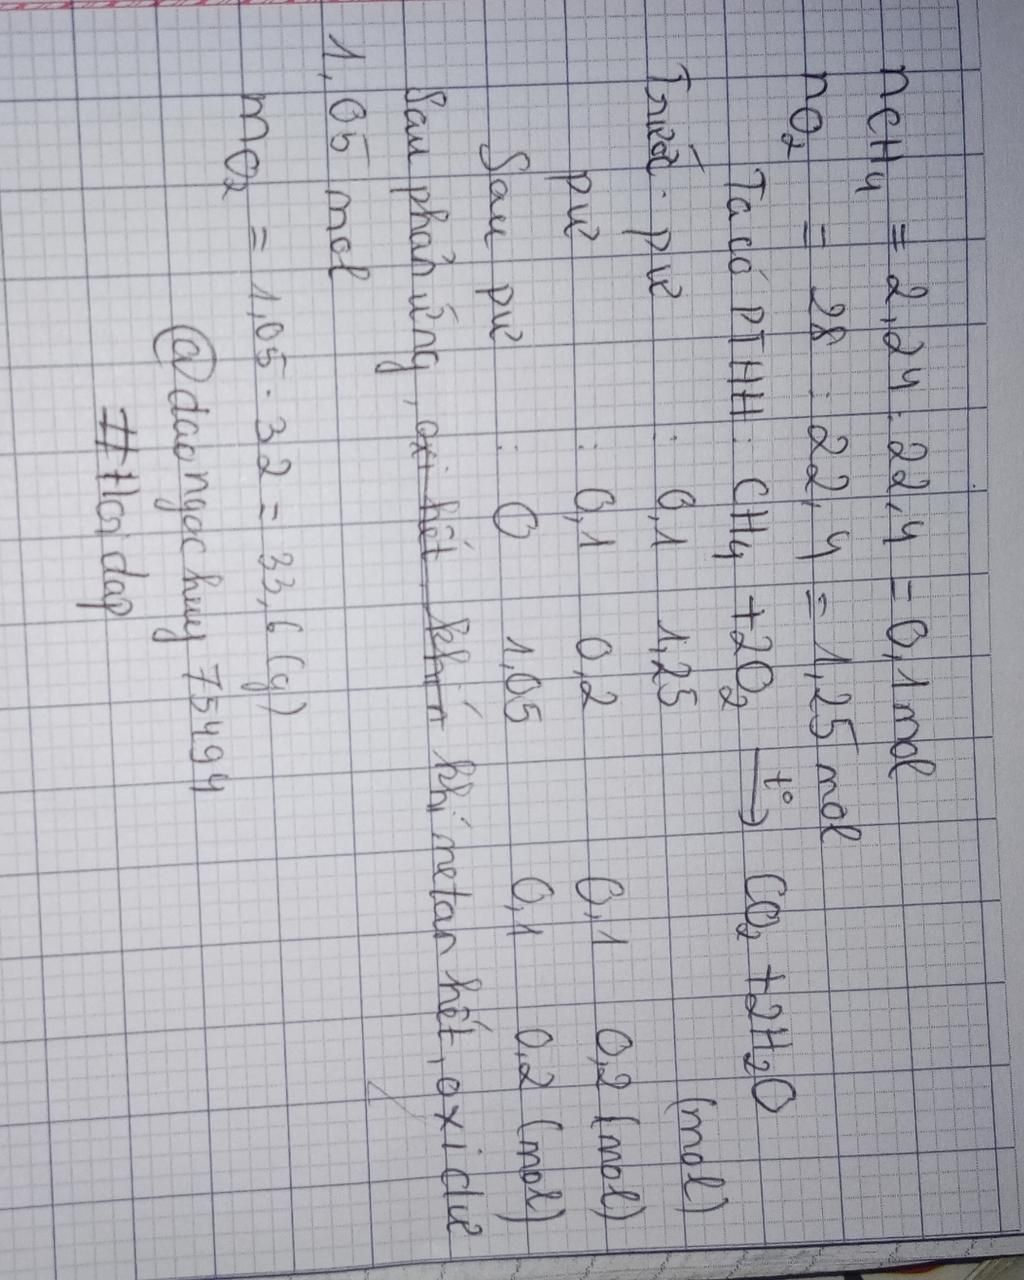 nCH₄ = 2,24 : 22,4 = 0,1 mol
nO₂ = 28 : 22,4 = 1,25 mol
Ta có PTHH: CH₄ + 2O₂ →(t°) CO₂ + 2H₂O
Trước pư : 0,1 1,25 (mol)
pư : 0,1 0,2 0,1 0,2 (mol)
Sau pư : 0 1,05 0,1 0,2 (mol)
Sau phản ứng, oxi hết khí n khí metan hết, oxi dư
1,05 mol
mO₂ = 1,05 . 32 = 33,6 (g)
@daongochuy75494
#Hoidap